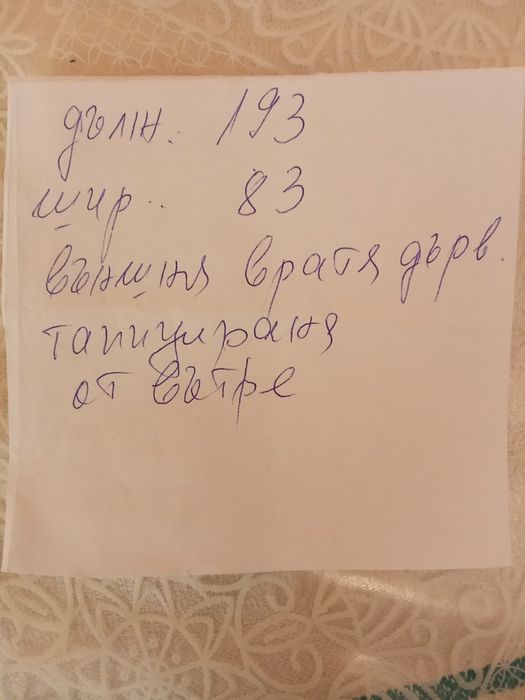 дълн. 193
шир.. 83
външня вратя дърв.
тапицираня
от вътре